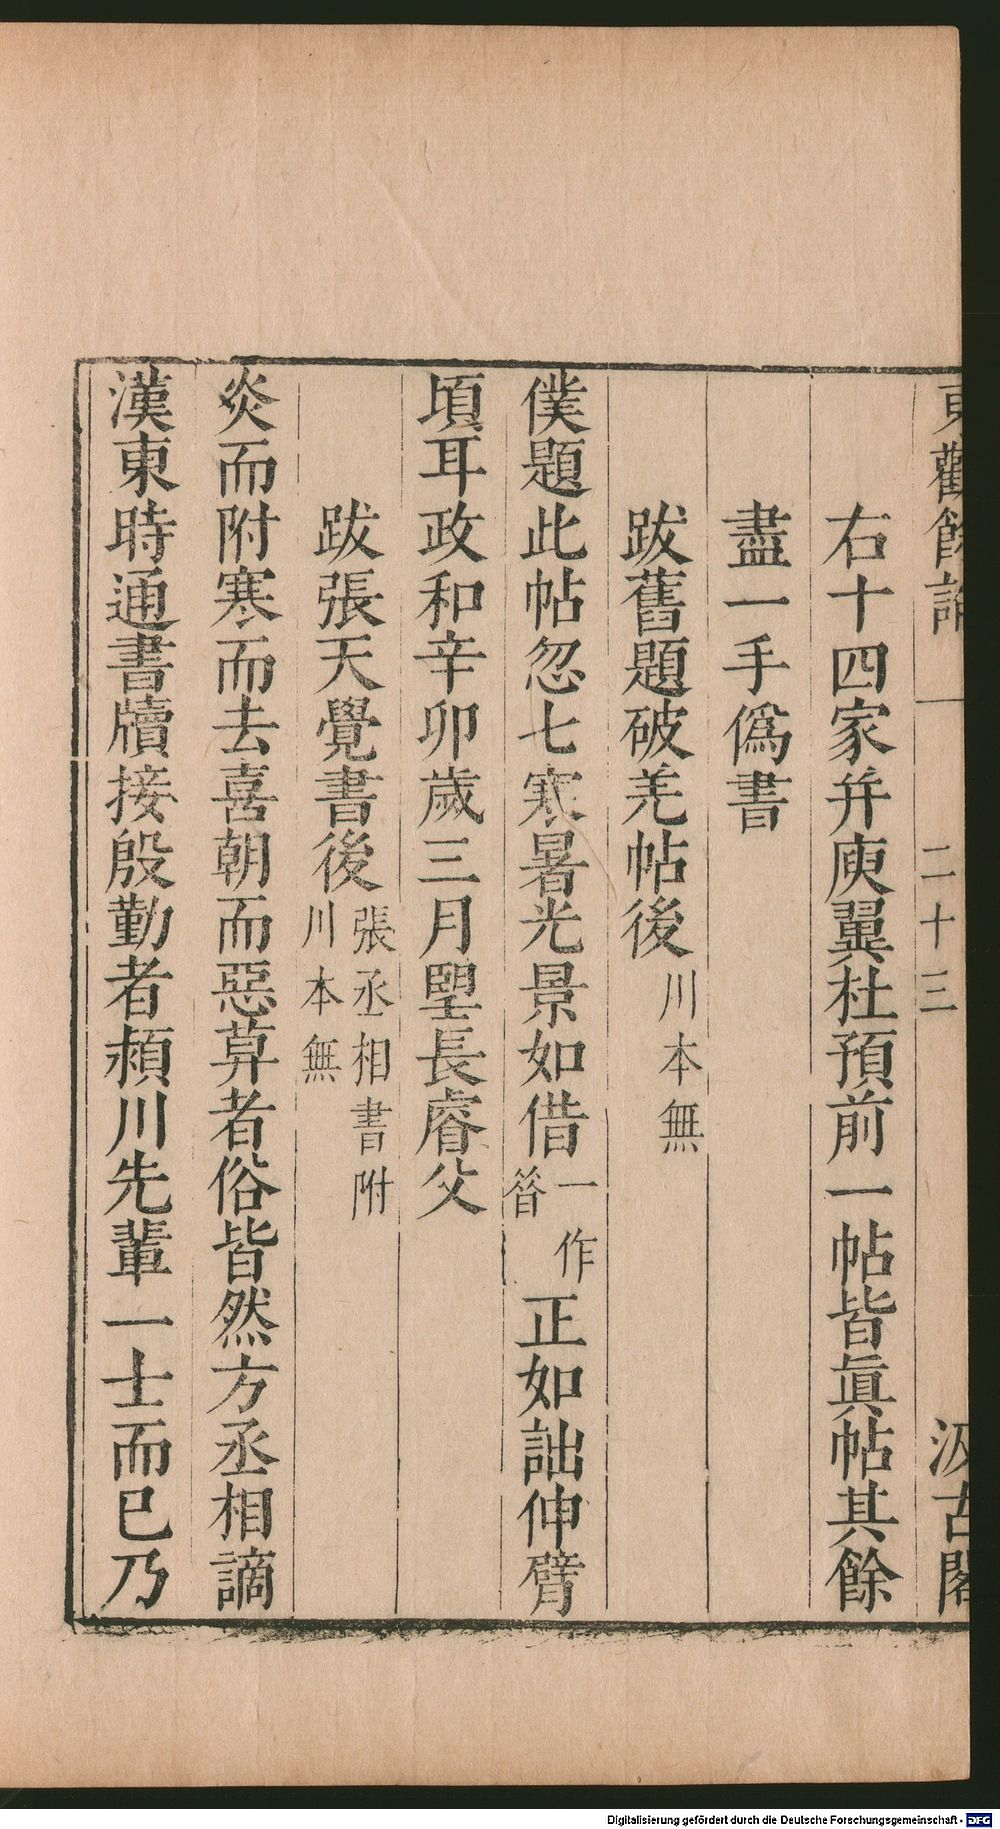 東觀餘論 二十三 汲古閣
右十四家并庾翼杜預前一帖皆眞帖其餘
盡一手僞書
跋舊題破羌帖後川本無
僕題此帖忽七寒暑光景如借一作簪正如詘伸臂
頃耳政和辛卯歲三月朢長睿父
跋張天覺書後張丞相書附川本無
炎而附寒而去喜朝而惡莫者俗皆然方丞相謫
漢東時通書牘接殷勤者潁川先輩一士而已乃
Digitalisierung gefördert durch die Deutsche Forschungsgemeinschaft - DFG